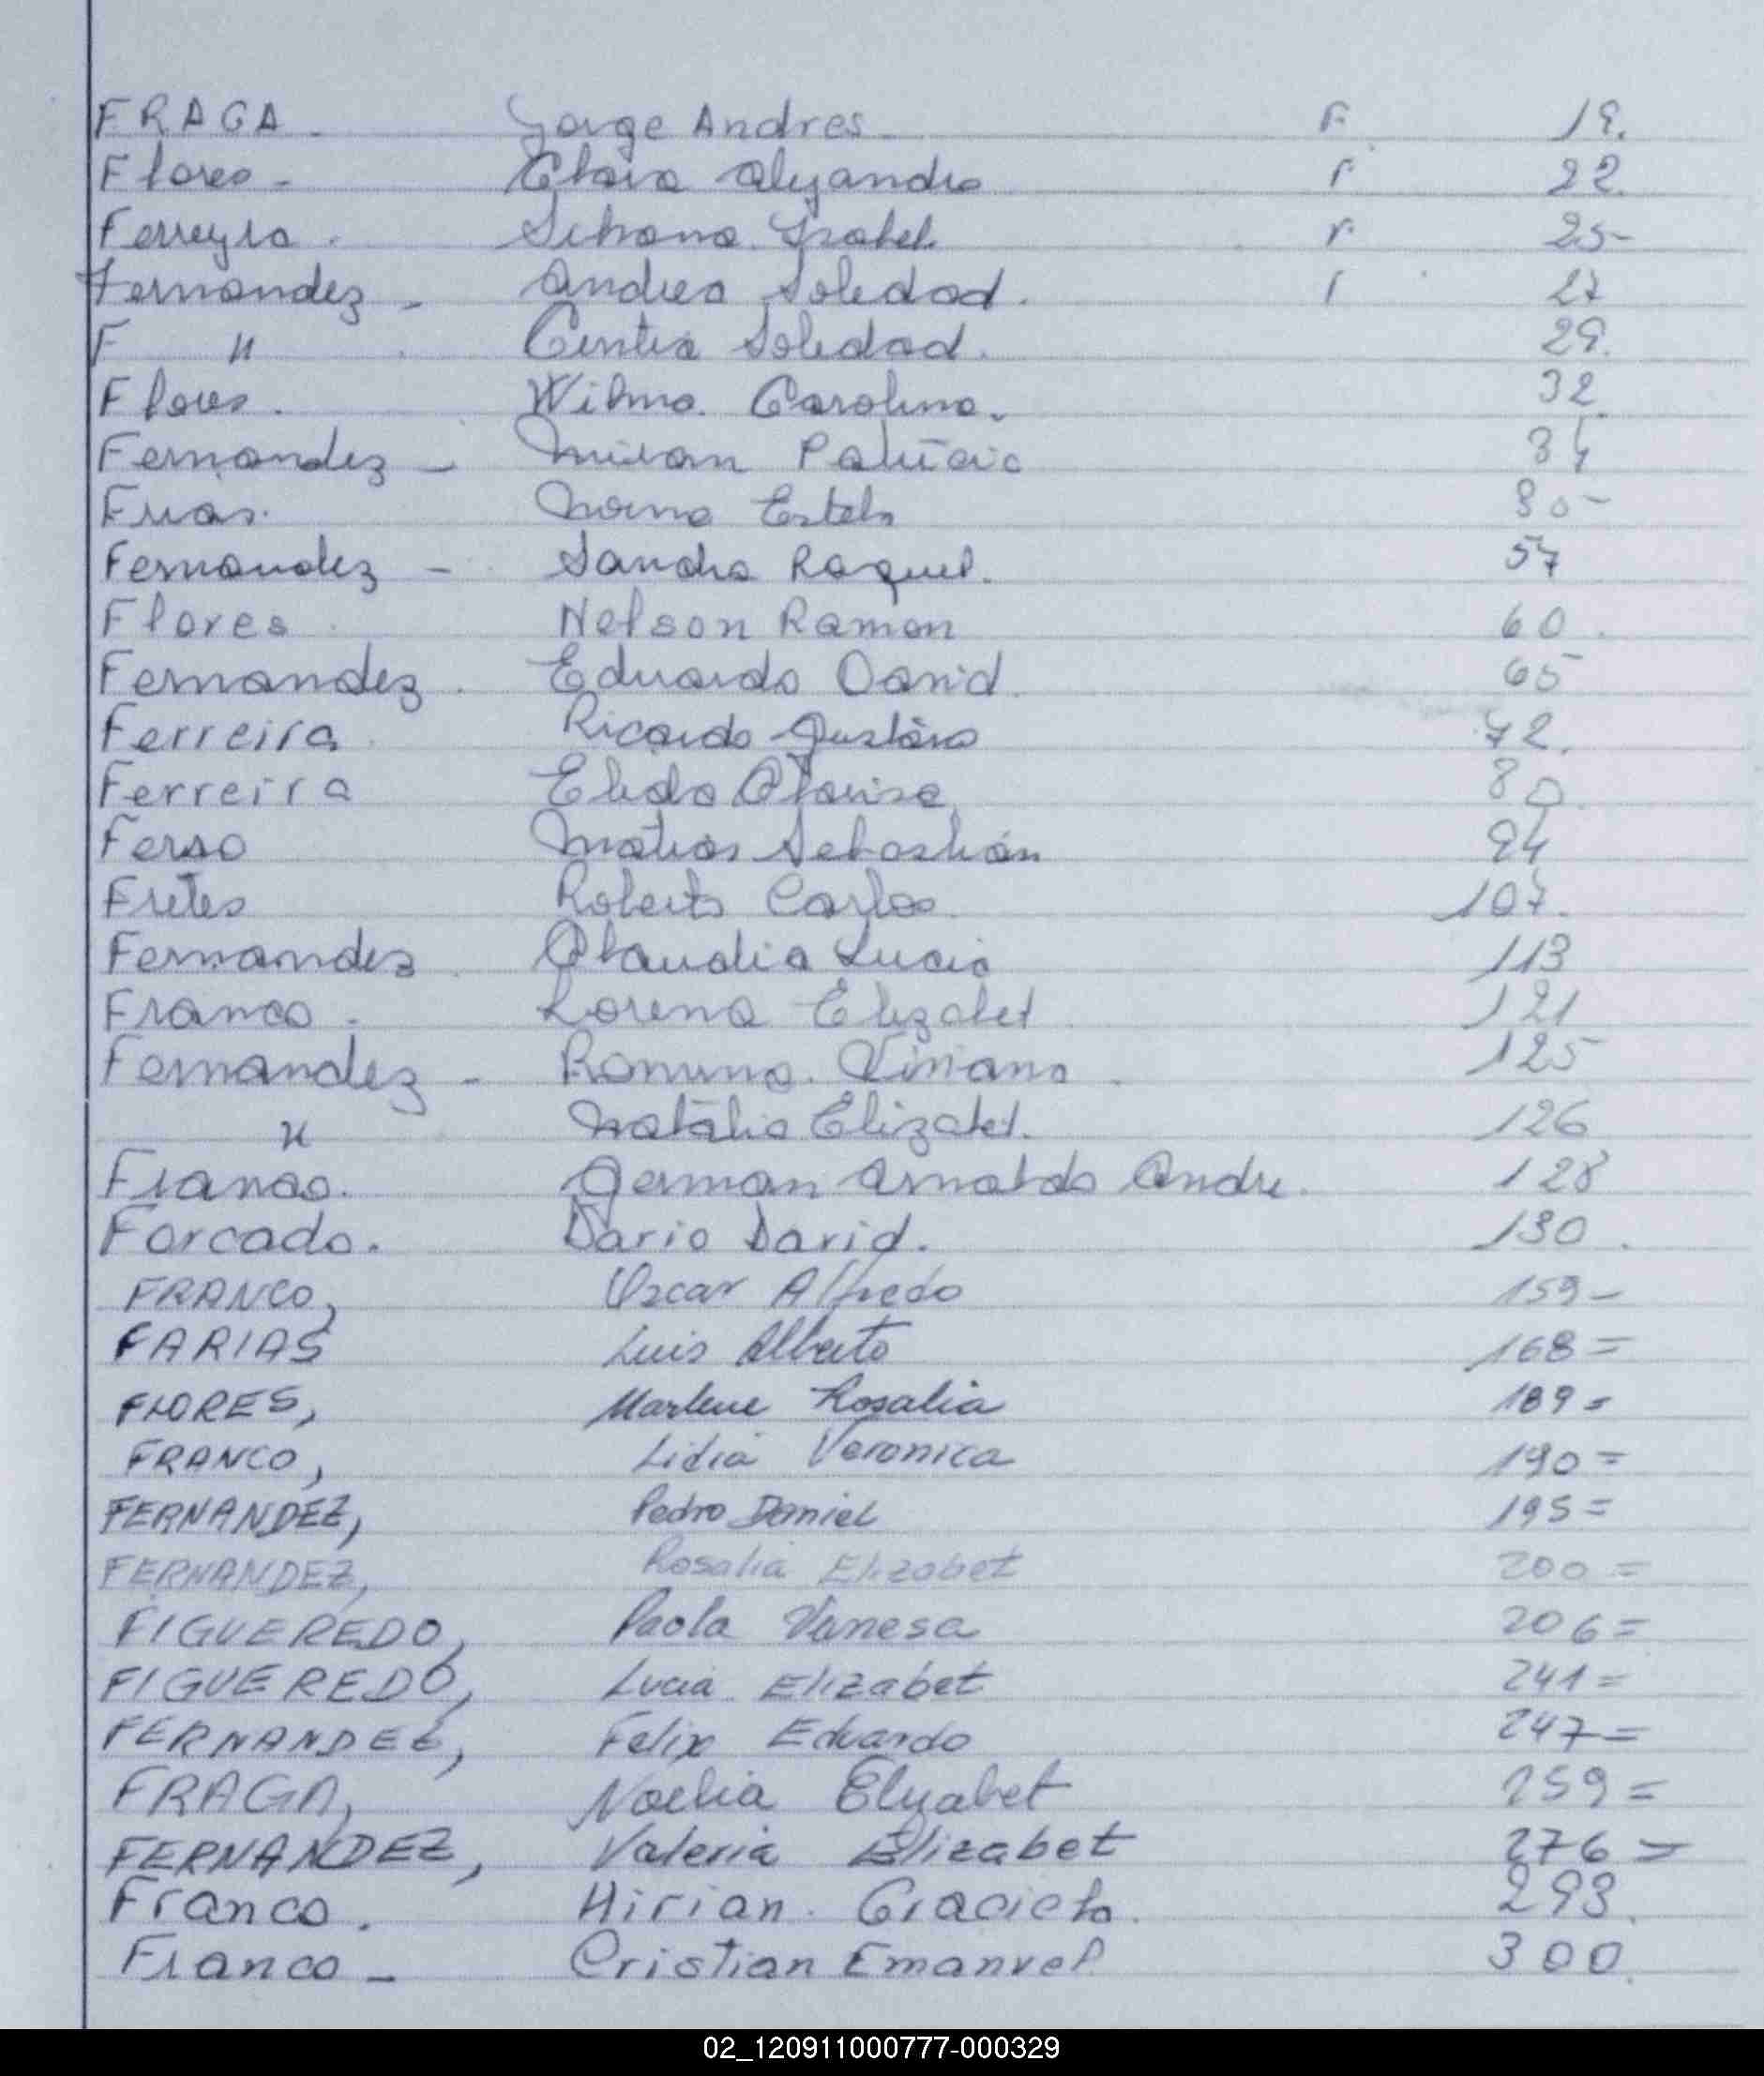 FRAGA - Jorge Andres - F. 19.
Flores - Clara Alejandra F 22.
Ferreyra. Silvana Isabel. F 25-
Fernandez - Andrea Soledad. F 27
F " Cintia Soledad. 29.
Flores. Wilma. Carolina. 32
Fernandez - Mirian Patricia 34
Frias. Norma Estela
Fernandez - Sandra Raquel. 57
Flores Nelson Ramon 60.
Fernandez. Eduardo David. 65
Ferreira Ricardo Gustavo 72.
Ferreira Elida 80.
Matias Sebastián 94
Fretes Roberto Carlos. 107.
Fernandez Claudia Lucia 113
Franco. Lorena Elizabet 121
Fernandez - Romina. Viviana. 125
" Natalia Elizabet. 126
Franco. German Arnaldo Andre. 128
Forcado. Dario David. 130.
FRANCO, Oscar Alfredo 159-
FARIAS Luis Alberto 168=
FLORES, Marlene Rosalia 189=
FRANCO, Lidia Veronica 190=
FERNANDEZ, Pedro Daniel 195=
FERNANDEZ, Rosalia Elizabet 200=
FIGUEREDO, Paola Vanesa 206=
FIGUEREDO, Lucia Elizabet 241=
FERNANDEZ, Felix Eduardo 247=
FRAGA, Noelia Elizabet 259=
FERNANDEZ, Valeria Elizabet 276=
Franco. Mirian. Graciela. 293.
Franco - Cristian Emanuel 300.
02_120911000777-000329